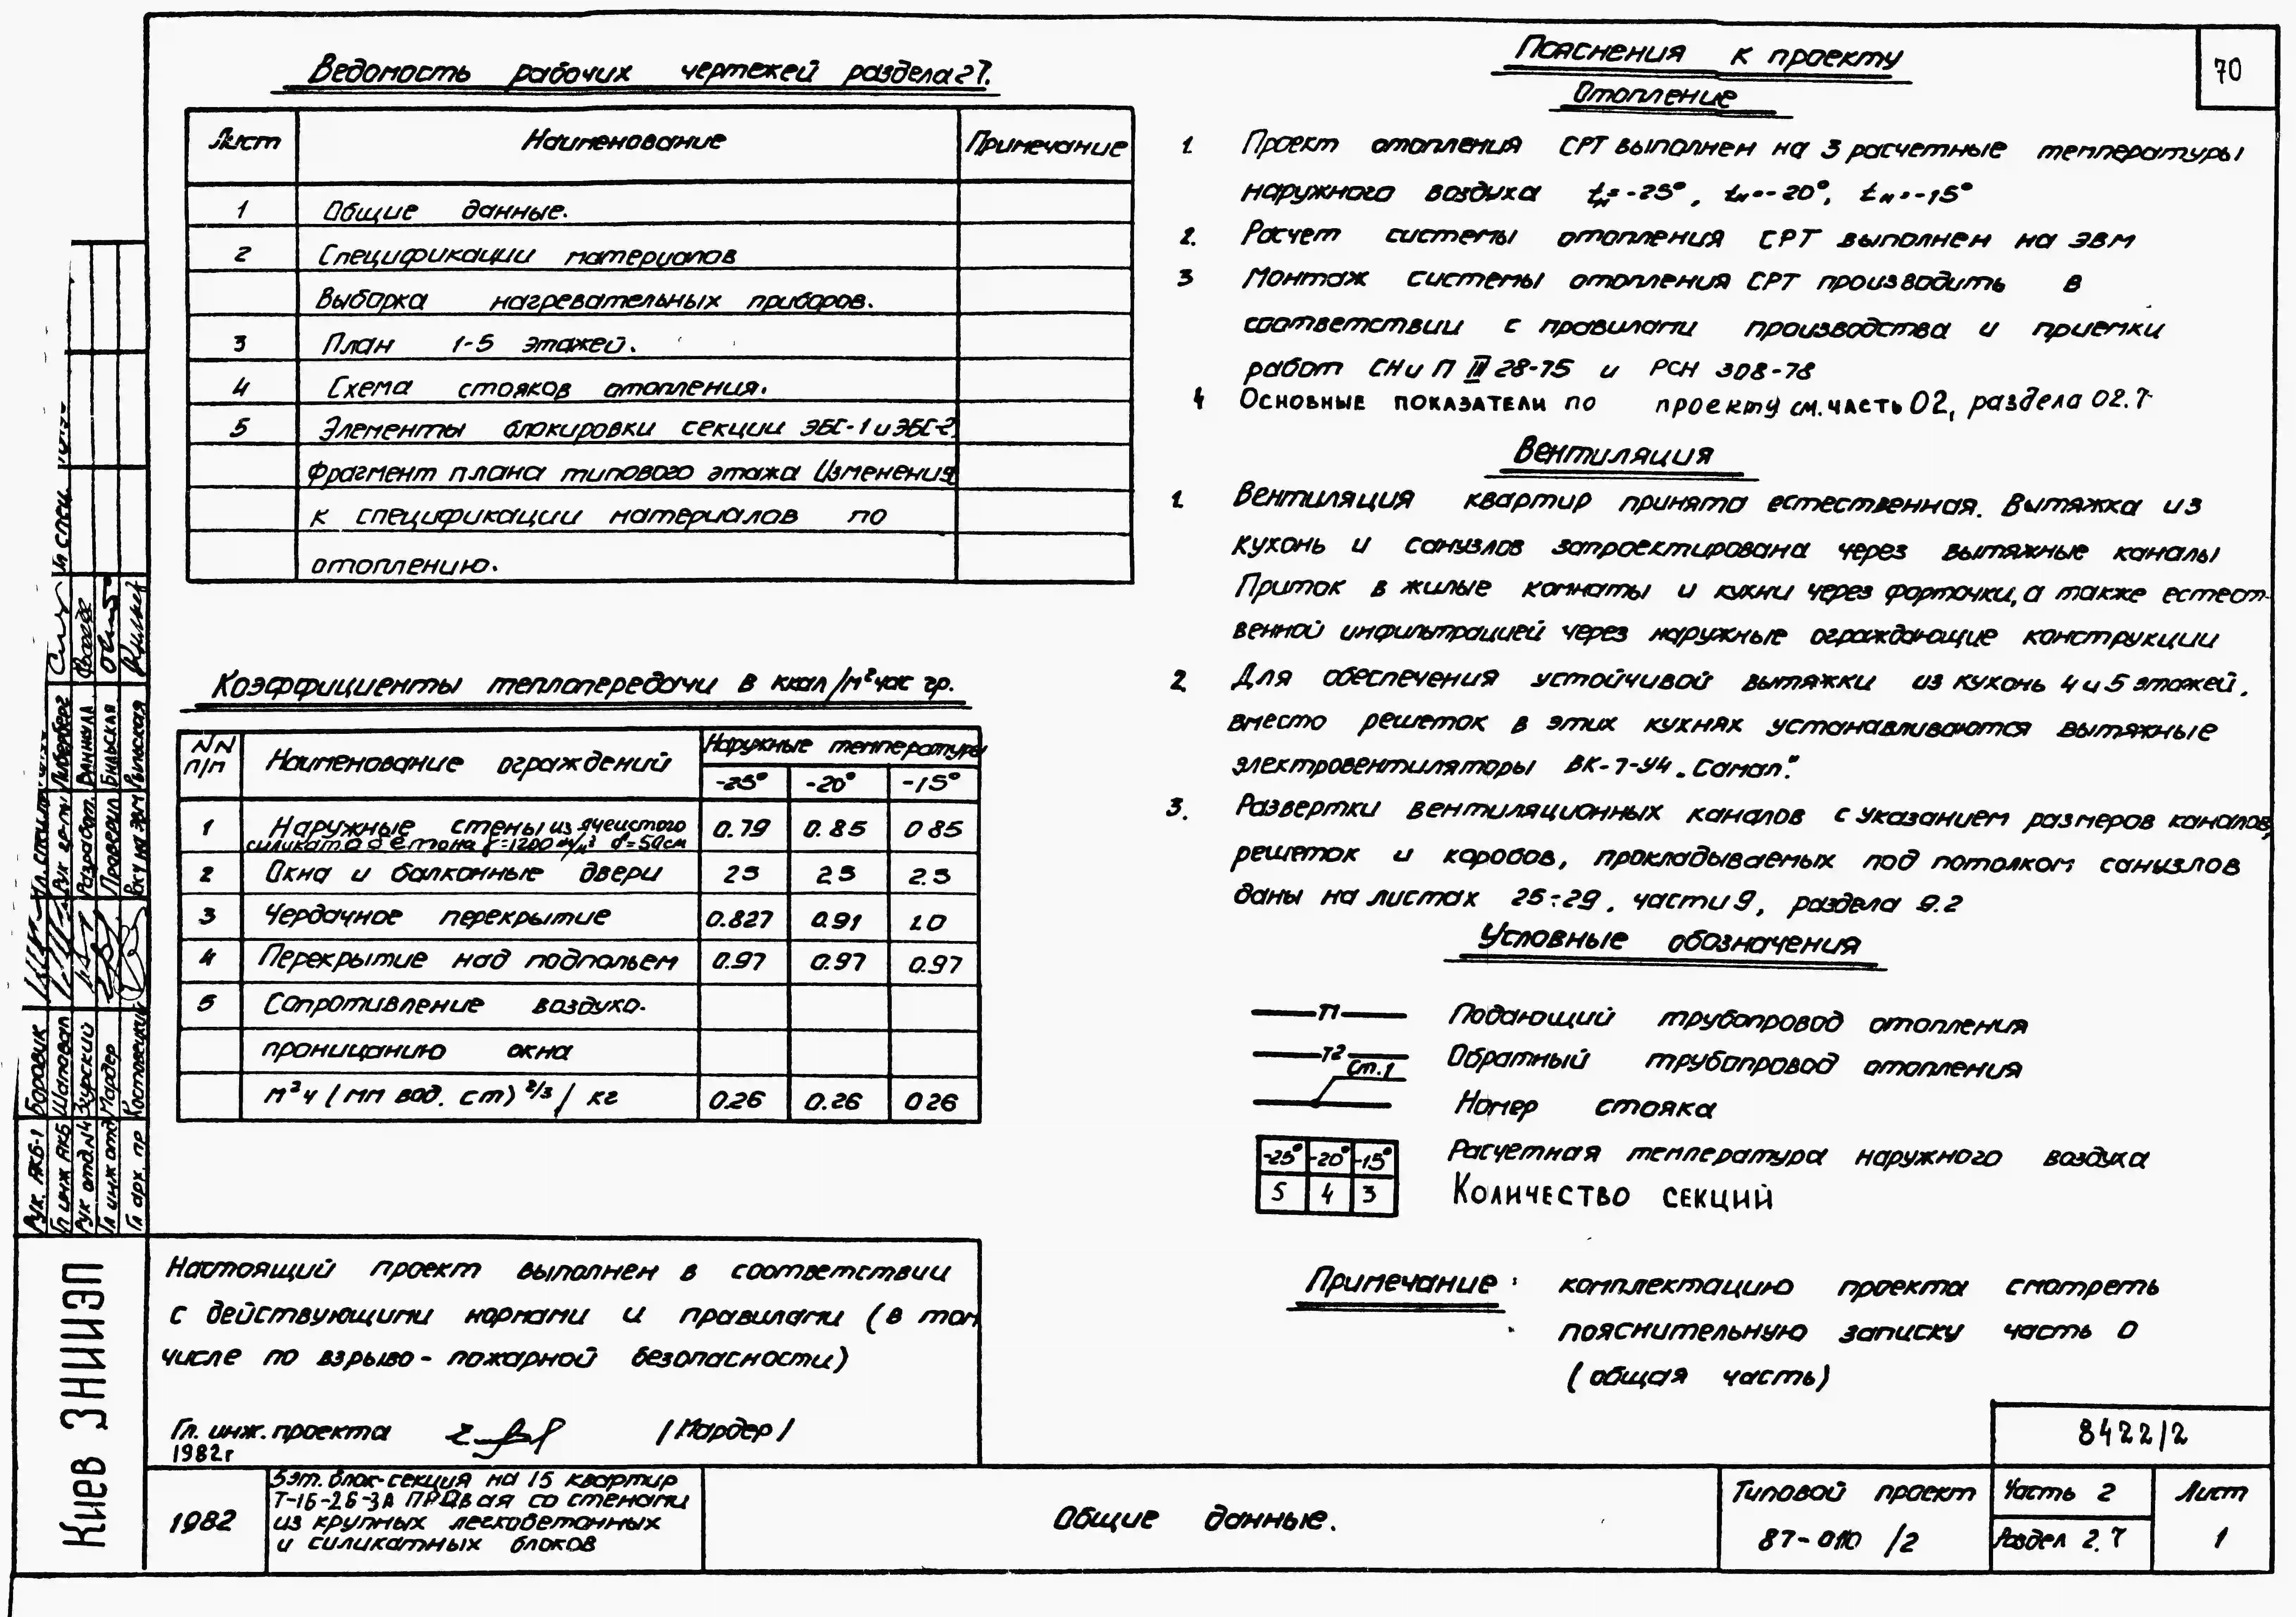 70
Ведомость рабочих чертежей раздела 2 7.
Лист Наименование Примечание
1 Общие данные.
2 Спецификации материалов
Выборка нагревательных приборов.
3 План 1-5 этажей.
4 Схема стояков отопления.
5 Элементы блокировки секции ЭБС-1 и ЭБС-2.
Фрагмент плана типового этажа Изменения
к спецификации материалов по
отоплению.
Коэффициенты теплопередачи в ккал/м² час гр.
NN п/п Наименование ограждений Наружные температуры
-25° -20° -15°
1 Наружные стены из ячеистого 0.79 0.85 0 85
силикатобетона γ=1200 кг/м³ δ=50см
2 Окна и балконные двери 2 3 2 3 2.3
3 Чердачное перекрытие 0.827 0.91 1.0
4 Перекрытие над подпольем 0.97 0.97 0.97
5 Сопротивление воздухо-
проницанию окна
м² ч (мм вод. ст) 2/3 / кг 0.26 0.26 0 26
Настоящий проект выполнен в соответствии
с действующими нормами и правилами (в том
числе по взрыво- пожарной безопасности)
Гл. инж. проекта /Мардер/
1982г
Пояснения к проекту
Отопление
1. Проект отопления СРТ выполнен на 3 расчетные температуры
наружного воздуха tн=-25°, tн=-20°, tн=-15°
2. Расчет системы отопления СРТ выполнен на ЭВМ
3 Монтаж системы отопления СРТ производить в
соответствии с правилами производства и приемки
работ СНиП III 28-75 и РСН 308-78
4 Основные показатели по проекту см. часть 02, раздела 02.7
Вентиляция
1. Вентиляция квартир принята естественная. Вытяжка из
кухонь и санузлов запроектирована через вытяжные каналы
Приток в жилые комнаты и кухни через форточки, а также естест-
венной инфильтрацией через наружные ограждающие конструкции
2. Для обеспечения устойчивой вытяжки из кухонь 4 и 5 этажей,
вместо решеток в этих кухнях устанавливаются вытяжные
электровентиляторы ВК-7-У4 „Самал".
3. Развертки вентиляционных каналов с указанием размеров каналов,
решеток и коробов, прокладываемых под потолком санузлов
даны на листах 25÷29, части 9, раздела 9.2
Условные обозначения
Т1 Подающий трубопровод отопления
Т2 Обратный трубопровод отопления
Ст.1 Номер стояка
-25° -20° -15° Расчетная температура наружного воздуха
5 4 3 Количество секций
Примечание: комплектацию проекта смотреть
пояснительную записку часть 0
(общая часть)
8422/2
1982
5эт. блок-секция на 15 квартир
Т-1Б-2Б-3А правая со стенами
из крупных легкобетонных
и силикатных блоков
Общие данные.
Типовой проект
87-010 /2
Часть 2
Раздел 2.7
Лист
1
Киев ЗНИИЭП
Рук. АКБ-1 Боровик
Гл инж АКБ Шаповал
Рук отд. N4 Зурский
Гл инж отд Мардер
Гл арх. пр Костовецкий
Рук гр-пы Либерберг
Разработ. Ваннула
Проверил Бильская
Расч на ЭВМ Рыльская